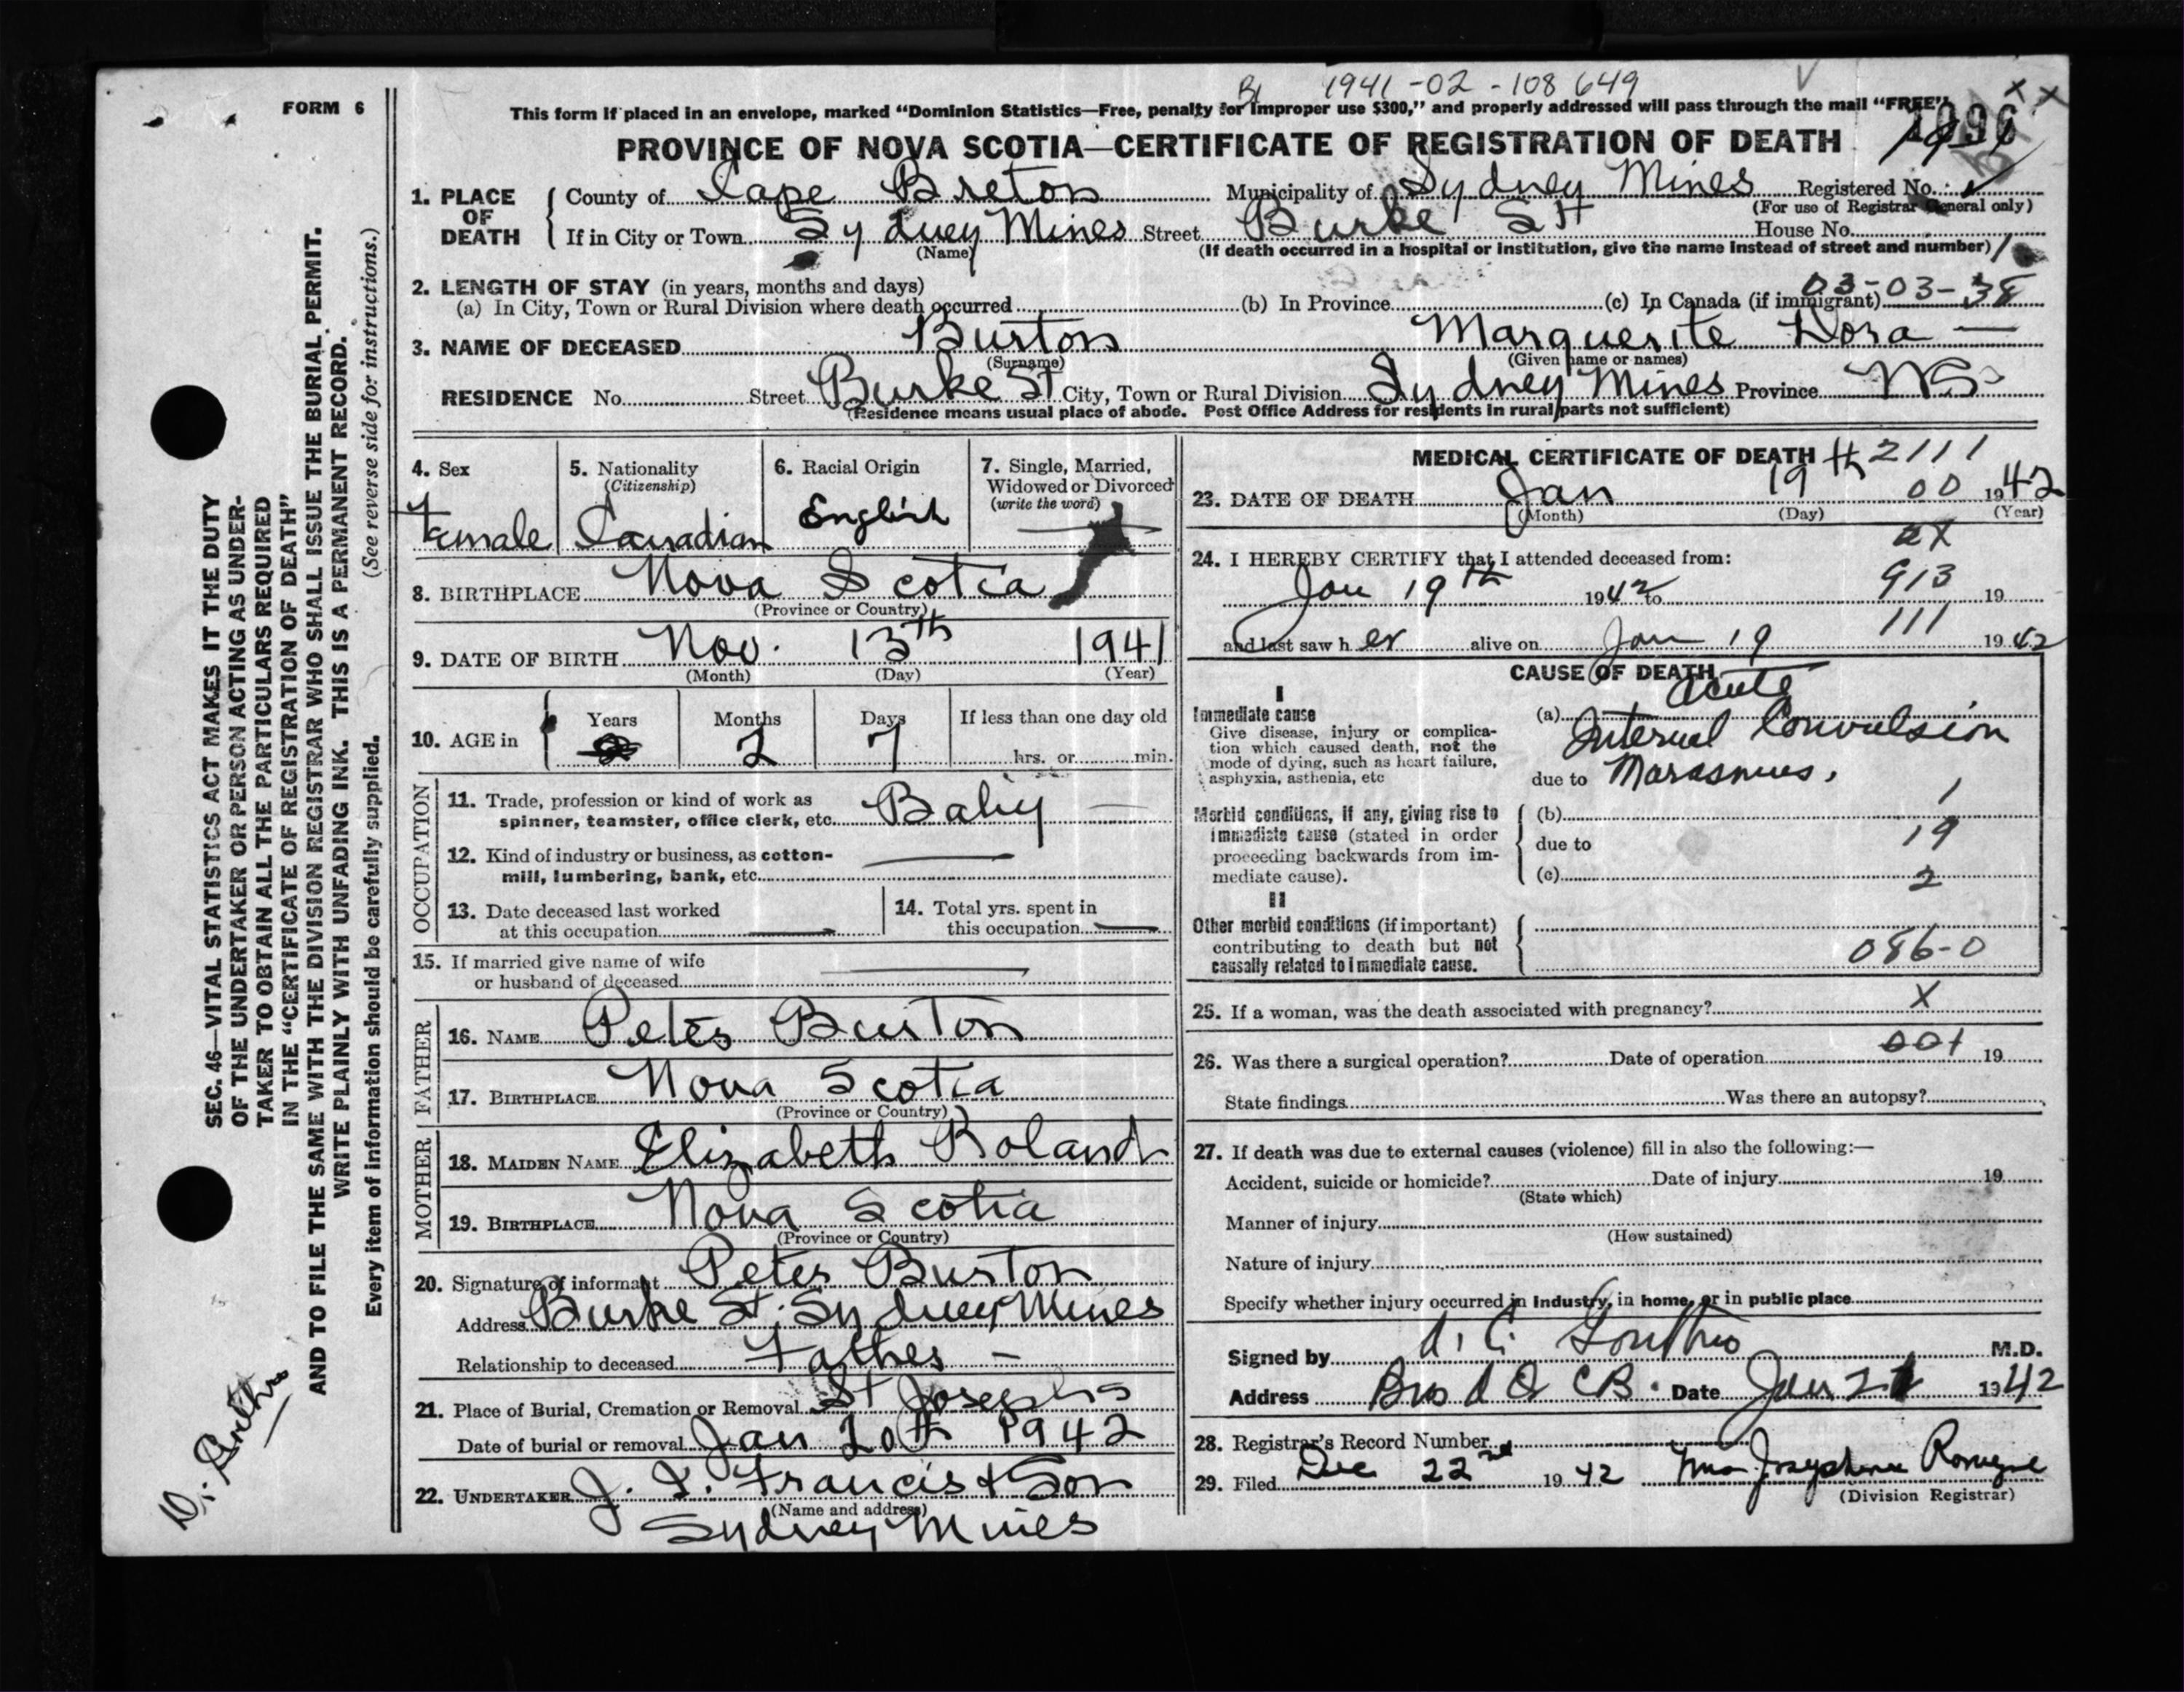 Bl 1941-02-108649
FORM 6
This form if placed in an envelope, marked "Dominion Statistics—Free, penalty for improper use $300," and properly addressed will pass through the mail "FREE"
PROVINCE OF NOVA SCOTIA—CERTIFICATE OF REGISTRATION OF DEATH
1. PLACE OF DEATH
County of Cape Breton Municipality of Sydney Mines Registered No.
(For use of Registrar General only)
If in City or Town Sydney Mines Street Burke St House No.
(Name) (If death occurred in a hospital or institution, give the name instead of street and number)
2. LENGTH OF STAY (in years, months and days) 03-03-38
(a) In City, Town or Rural Division where death occurred (b) In Province (c) In Canada (if immigrant)
3. NAME OF DECEASED Burton Marguerite Dora
(Surname) (Given name or names)
RESIDENCE No. Street Burke St City, Town or Rural Division Sydney Mines Province NS
(Residence means usual place of abode. Post Office Address for residents in rural parts not sufficient)
4. Sex
Female
5. Nationality
(Citizenship)
Canadian
6. Racial Origin
English
7. Single, Married,
Widowed or Divorced
(write the word)
8. BIRTHPLACE Nova Scotia
(Province or Country)
9. DATE OF BIRTH Nov. 13th 1941
(Month) (Day) (Year)
10. AGE in
Years Months Days If less than one day old
2 7 hrs. or min.
OCCUPATION
11. Trade, profession or kind of work as
spinner, teamster, office clerk, etc. Baby
12. Kind of industry or business, as cotton-
mill, lumbering, bank, etc.
13. Date deceased last worked
at this occupation
14. Total yrs. spent in
this occupation
15. If married give name of wife
or husband of deceased
FATHER
16. NAME Peter Burton
17. BIRTHPLACE Nova Scotia
(Province or Country)
MOTHER
18. MAIDEN NAME Elizabeth Roland
19. BIRTHPLACE Nova Scotia
(Province or Country)
20. Signature of informant Peter Burton
Address Burke St. Sydney Mines
Relationship to deceased Father
21. Place of Burial, Cremation or Removal St Josephs
Date of burial or removal Jan 20th 1942
22. UNDERTAKER J. I. Francis & Son
(Name and address)
Sydney Mines
MEDICAL CERTIFICATE OF DEATH 2111
23. DATE OF DEATH Jan 19th 00 1942
(Month) (Day) (Year)
24. I HEREBY CERTIFY that I attended deceased from:
Jan 19th 1942 to 913 19
and last saw her alive on Jan 19 111 1942
CAUSE OF DEATH
I
Immediate cause
Give disease, injury or complica-
tion which caused death, not the
mode of dying, such as heart failure,
asphyxia, asthenia, etc
acute
(a) Internal Convulsion
due to Marasmus.
Morbid conditions, if any, giving rise to
immediate cause (stated in order
proceeding backwards from im-
mediate cause).
(b) 1
due to 19
(c) 2
II
Other morbid conditions (if important)
contributing to death but not
causally related to immediate cause.
086-0
25. If a woman, was the death associated with pregnancy? X
26. Was there a surgical operation? Date of operation 001 19
State findings Was there an autopsy?
27. If death was due to external causes (violence) fill in also the following:—
Accident, suicide or homicide? Date of injury 19
(State which)
Manner of injury
(How sustained)
Nature of injury
Specify whether injury occurred in industry, in home, or in public place
Signed by M.D.
Address Date Jan 21 1942
28. Registrar's Record Number
29. Filed Dec 22nd 1942 Mrs Josephine
(Division Registrar)
SEC. 46—VITAL STATISTICS ACT MAKES IT THE DUTY
OF THE UNDERTAKER OR PERSON ACTING AS UNDER-
TAKER TO OBTAIN ALL THE PARTICULARS REQUIRED
IN THE "CERTIFICATE OF REGISTRATION OF DEATH"
AND TO FILE THE SAME WITH THE DIVISION REGISTRAR WHO SHALL ISSUE THE BURIAL PERMIT.
WRITE PLAINLY WITH UNFADING INK. THIS IS A PERMANENT RECORD.
Every item of information should be carefully supplied. (See reverse side for instructions.)